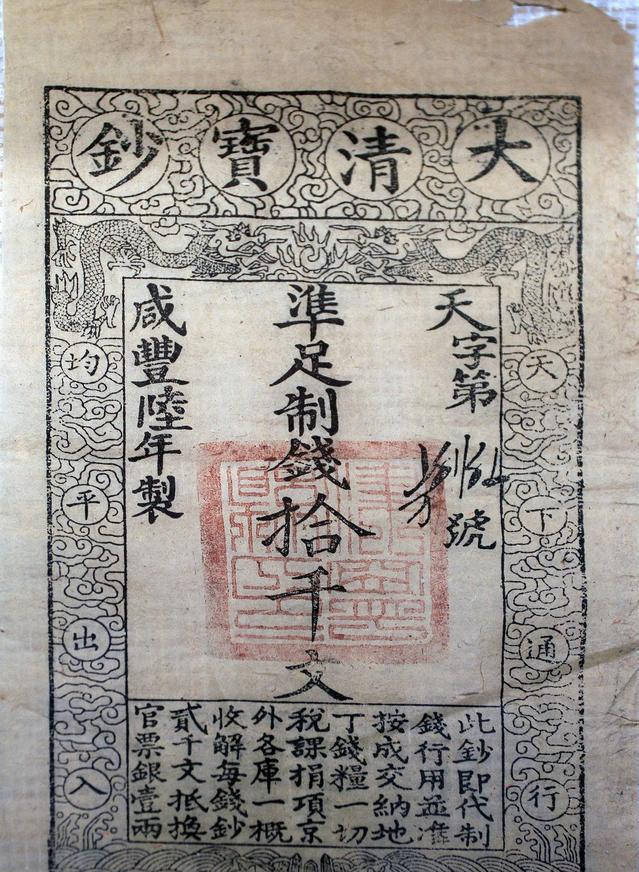 大清寶鈔
天下通行
天字第號
準足制錢拾千文
咸豐陸年製
均平出入
此鈔即代制
錢行用並准
按成交納地
丁錢糧一切
稅課捐項京
外各庫一概
收解每錢鈔
貳千文抵換
官票銀壹兩